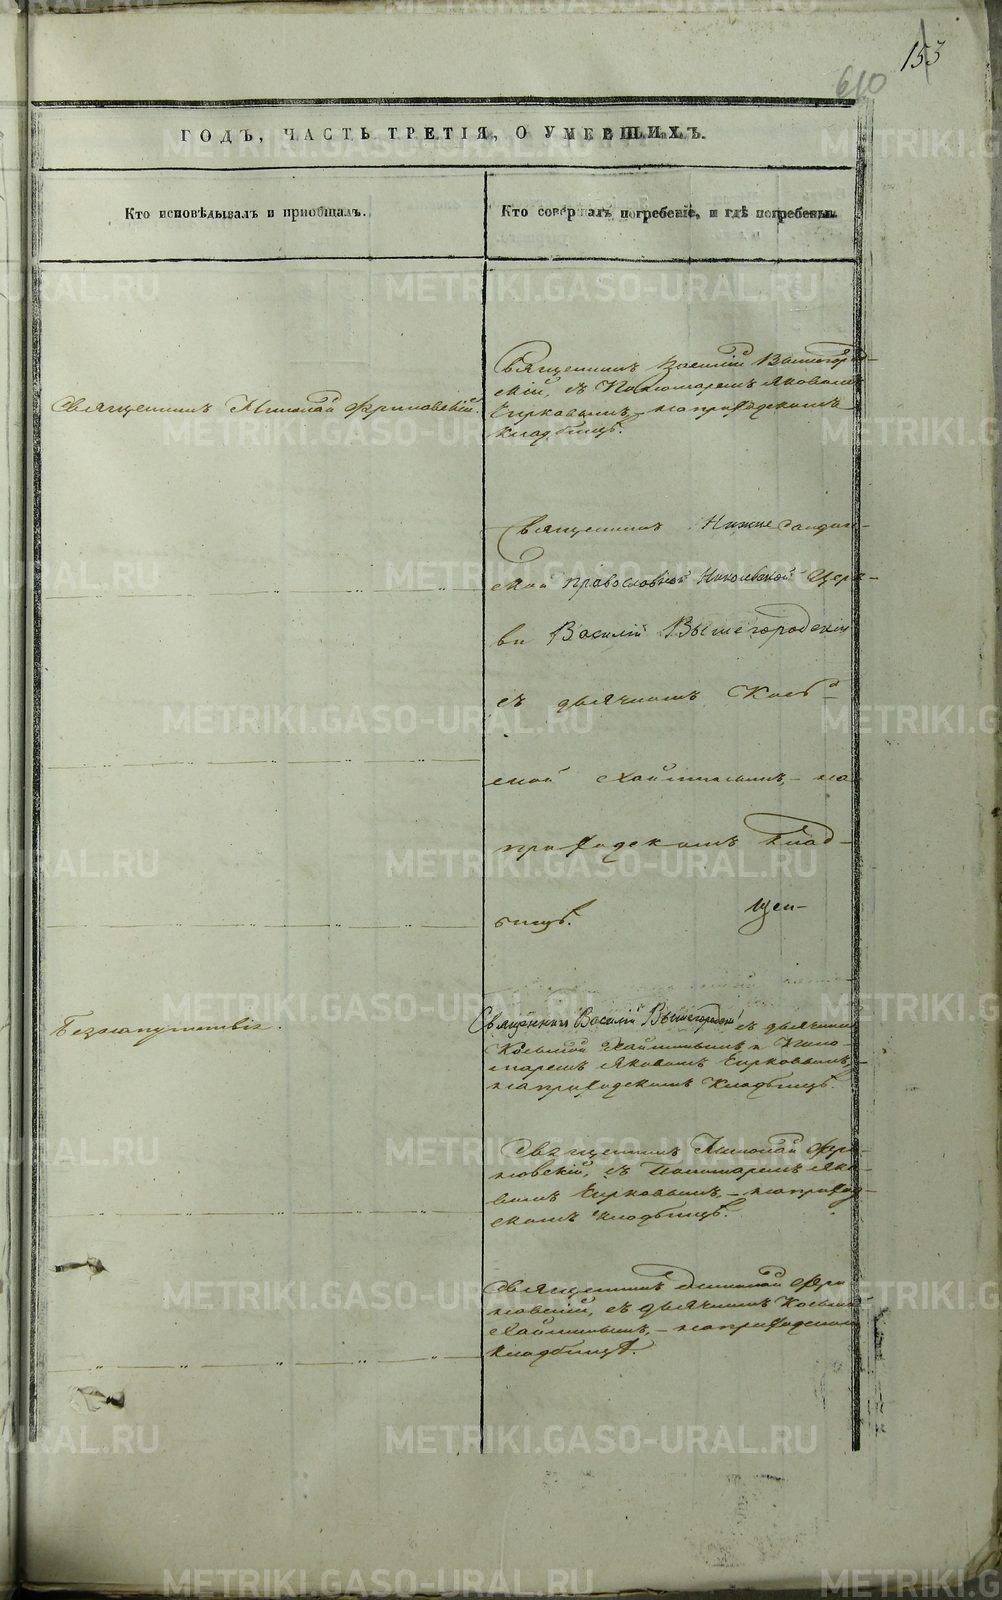 153
610
ГОДЪ, ЧАСТЬ ТРЕТІЯ, О УМЕРШИХЪ.
Кто исповѣдывалъ и пріобщалъ.
Кто совершалъ погребеніе, и гдѣ погребены.
Священникъ Николай Фриновскій.
Священникъ Василій Вышегород-
скій, съ Пономаремъ Яковомъ
Чирковымъ, на приходскомъ
кладбищѣ.
Священникъ Нижне
ской православной Николаевской Церк-
ви Василій Вышегородскій
съ дьячкомъ Козь-
мой Хаймиными, на
приходскомъ клад-
бищѣ.
Безнапутствія.
Священникъ Василій Вышегородскій съ дьячкомъ
Козьмой и Поно-
маремъ Яковомъ Чирковымъ,
на приходскомъ кладбищѣ.
Священникъ Николай Фри-
новскій, съ Пономаремъ Яко-
вомъ Чирковымъ, на приход-
скомъ кладбищѣ.
Священникъ Николай Фри
новскій, съ дьячкомъ Козьмой
на приходскомъ
кладбищѣ.
METRIKI.GASO-URAL.RU